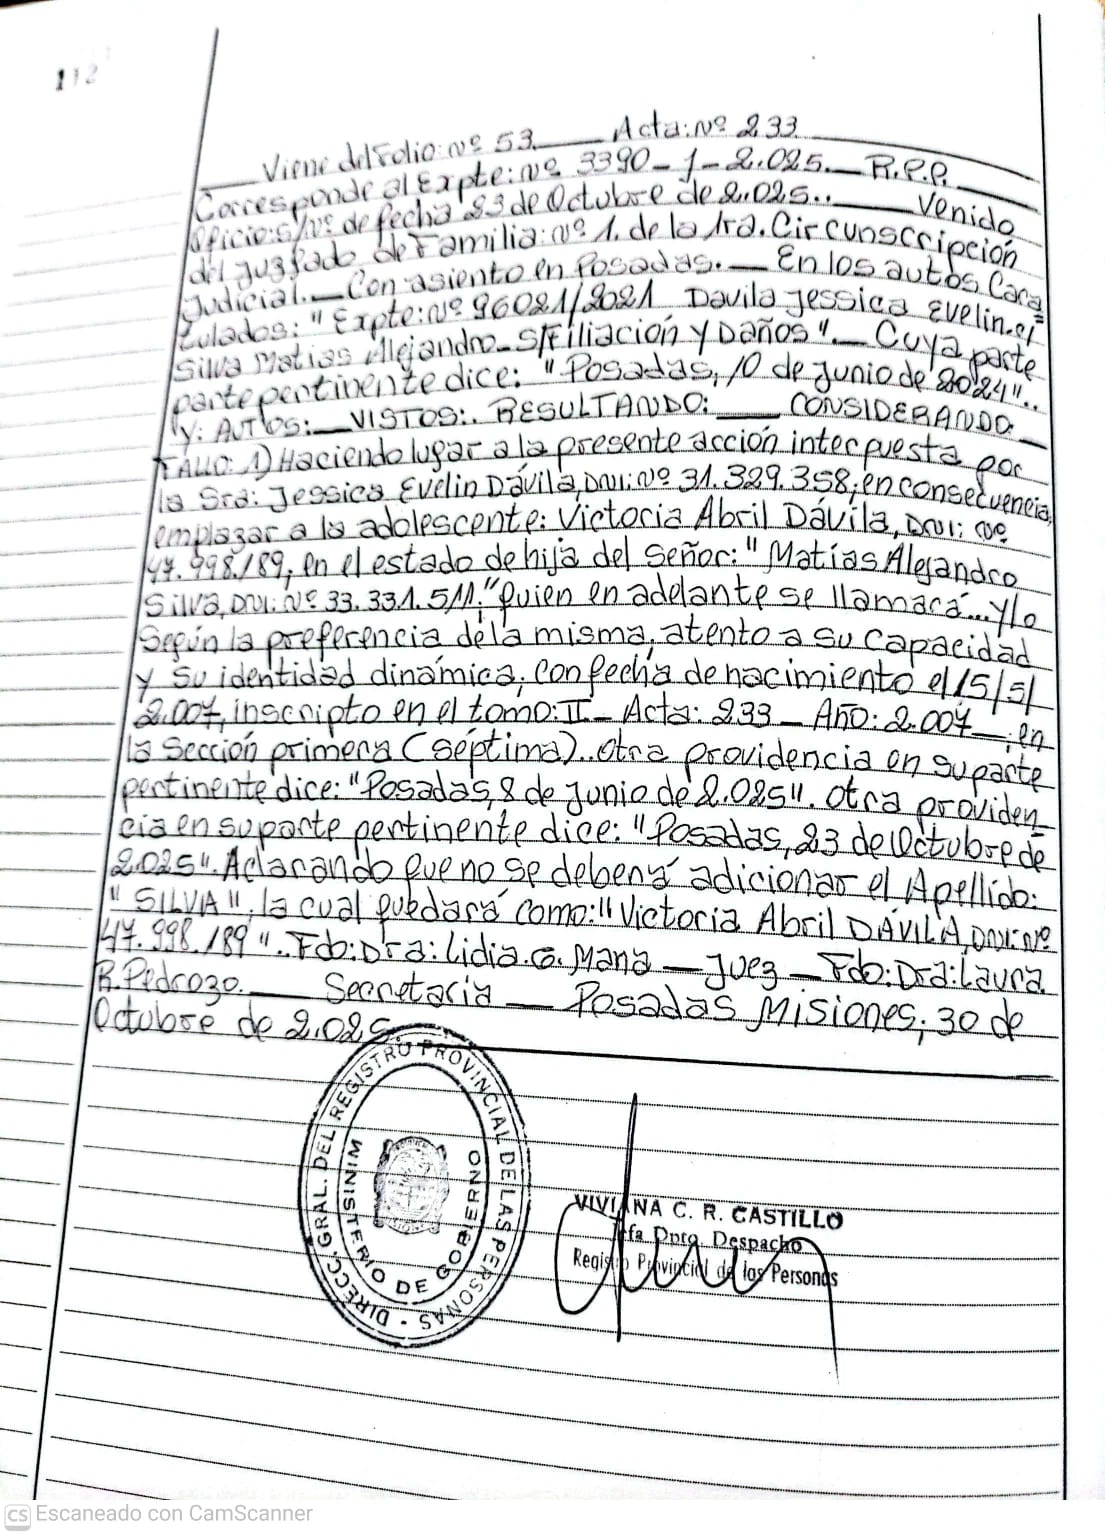 112
Viene del Folio: nº 53. Acta: Nº 233
Corresponde al Expte: nº 3390-1-2.025.- R.P.P.
Oficio: s/nº de fecha 23 de Octubre de 2.025.. Venido
del Juzgado de Familia: nº 1. de la 1ra. Circunscripción
Judicial.- Con asiento en Posadas.- En los autos Cara
tulados: "Expte: nº 96021/2021 Davila Jessica Evelin.c/
Silva Matias Alejandro_S/Filiación y Daños".- Cuya parte
parte pertinente dice: "Posadas, 10 de Junio de 2024"..
Y: AUTOS:_ VISTOS:. RESULTANDO:_ CONSIDERANDO
FALLO: 1) Haciendo lugar a la presente acción interpuesta por
la Sra: Jessica Evelin Dávila, DNI: Nº 31.329.358; en consecuencia,
emplazar a la adolescente: Victoria Abril Dávila, DNI: Nº
47.998.189; en el estado de hija del Señor: "Matías Alejandro
Silva, DNI: Nº 33.331.511." quien en adelante se llamará... y/o
Según la preferencia de la misma, atento a su capacidad
y su identidad dinámica, con fecha de nacimiento el 15/5/
2.007, inscripto en el tomo: II - Acta: 233 - Año: 2.007 -; en
la Sección primera (séptima).. otra providencia en su parte
pertinente dice: "Posadas, 8 de Junio de 2.025". otra providen
cia en su parte pertinente dice: "Posadas, 23 de Octubre de
2.025". Aclarando que no se deberá adicionar el Apellido:
"SILVIA", la cual quedará como: "Victoria Abril DÁVILA, DNI: Nº
47.998.189".. Fdo: Dra: Lidia. G. Mana - Juez - Fdo: Dra: Laura
R. Pedrozo. Secretaria - Posadas Misiones; 30 de
Octubre de 2.025
DIRECC. GRAL. DEL REGISTRO PROVINCIAL DE LAS PERSONAS
MINISTERIO DE GOBIERNO
VIVIANA C. R. CASTILLO
Jefa Dpto. Despacho
Registro Provincial de las Personas
CS Escaneado con CamScanner